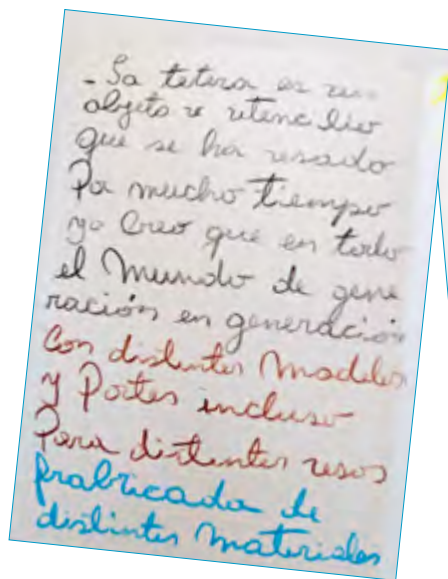 - La tetera es un
objeto u utencilio
que se ha usado
Por mucho tiempo
yo Creo que en todo
el Mundo de gene
ración en generación
Con distintos Modelos
y Portes incluso
Para distintos usos
frabricada de
distintos Materiales